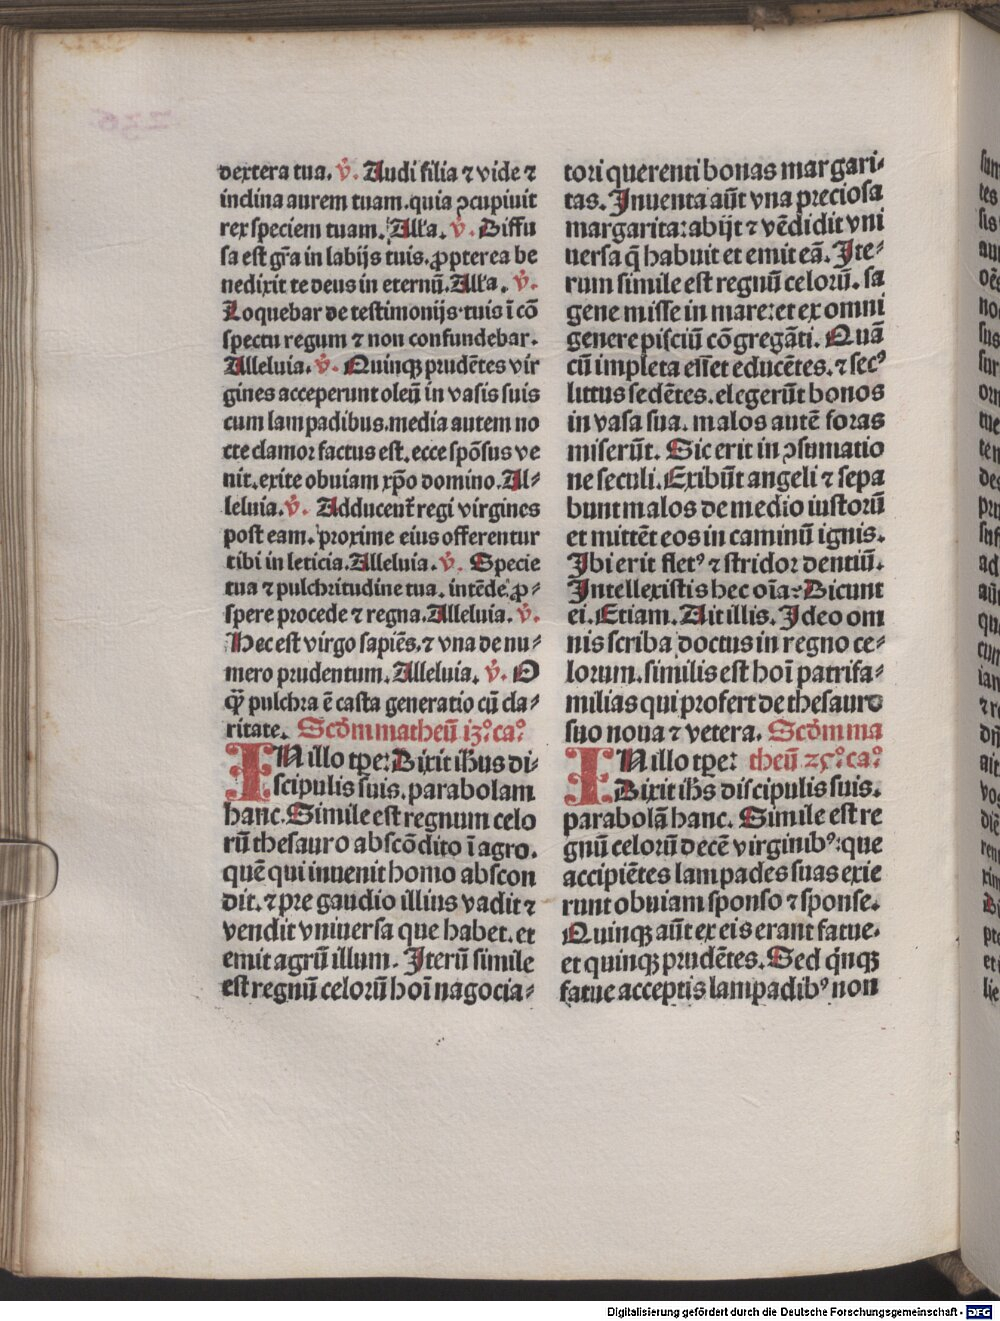 dextera tua. v̾. Audi filia ⁊ vide ⁊
inclina aurem tuam.quia ↄcupiuit
rex speciem tuam. All'a. v̾. Diffu
sa est gr̄a in labijs tuis.ꝓpterea be
nedixit te deus in eternū.All'a. v̾.
Loquebar de testimonijs tuis ī cō
spectu regum ⁊ non confundebar.
Alleluia. v̾. Quinqꝫ prudētes vir
gines acceperunt oleū in vasis suis
cum lampadibus.media autem no
cte clamor factus est. ecce spōsus ve
nit.exite obuiam xp̄o domino.Al-
leluia.v̾. Adducent̄ regi virgines
post eam. proxime eius offerentur
tibi in leticia.Alleluia. v̾. Specie
tua ⁊ pulchritudine tua. intēde.ꝓ-
spere procede ⁊ regna.Alleluia. v̾.
Hec est virgo sapiēs.⁊ vna de nu-
mero prudentum. Alleluia. v̾. O
q̄ꝫ pulchra ē casta generatio cū cla-
ritate. Scd̄m matheū iꝫ.° ca.°
IN illo tp̄e: Dixit ih̄us di-
scipulis suis. parabolam
hanc.Simile est regnum celo
rū thesauro abscōdito ī agro.
quē qui inuenit homo abscon
dit.⁊ pre gaudio illius vadit ⁊
vendit vniuersa que habet.et
emit agrū illum. Iterū simile
est regnū celorū hoī nagocia-
tori querenti bonas margari-
tas. Inuenta aūt vna preciosa
margarita:abijt ⁊ vēdidit vni
uersa q̄ habuit et emit eā. Ite-
rum simile est regnū celorū. sa
gene misse in mare:et ex omni
genere pisciū cōgregāti. Quā
cū impleta esset educētes.⁊ secꝰ
littus sedētes.elegerūt bonos
in vasa sua. malos autē foras
miserūt. Sic erit in ↄsumatio
ne seculi.Exibūt angeli ⁊ sepa
bunt malos de medio iustorū
et mittēt eos in caminū ignis.
Ibi erit fletꝰ ⁊ stridor dentiū.
Intellexistis hec oīa: Dicunt
ei. Etiam. Ait illis. Ideo om
nis scriba doctus in regno ce-
lorum.similis est hoī patrifa-
milias qui profert de thesauro
suo noua ⁊ vetera. Scd̄m ma
IN illo tp̄e: theū ⁊ꝯ.° ca.°
Dixit ih̄s discipulis suis.
parabolā hanc. Simile est re
gnū celorū decē virginibꝰ:que
accipiētes lampades suas exie
runt obuiam sponso ⁊ sponse.
Quinqꝫ aūt ex eis erant fatue.
et quinqꝫ prudētes.Sed q̇nqꝫ
fatue acceptis lampadibꝰ non
Digitalisierung gefördert durch die Deutsche Forschungsgemeinschaft - DFG